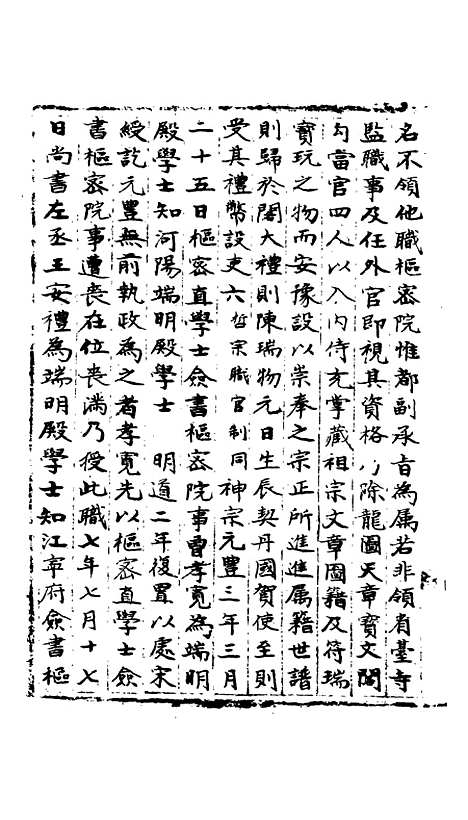 名不領他職樞密院惟都副承旨為属若非領省臺寺
監職事及任外官即視其資格以除龍圖天章寳文閣
勾當官四人以入内侍充掌藏祖宗文章圖籍及符瑞
寳玩之物而安豫設以崇奉之宗正所進進属籍世譜
則歸於閣大禮則陳瑞物元日生辰契丹國賀使至則
受其禮幣設吏六哲宗職官制同神宗元豐三年三月
二十五日樞密直學士僉書樞密院事曹孝寛為端明
殿學士知河陽端明殿學士 明道二年復置以處宋
綬訖元豐無前執政為之者孝寛先以樞密直學士僉
書樞密院事遭喪在位喪满乃授此職七年七月十七
日尚書左丞王安禮為端明殿學士知江寧府僉書樞